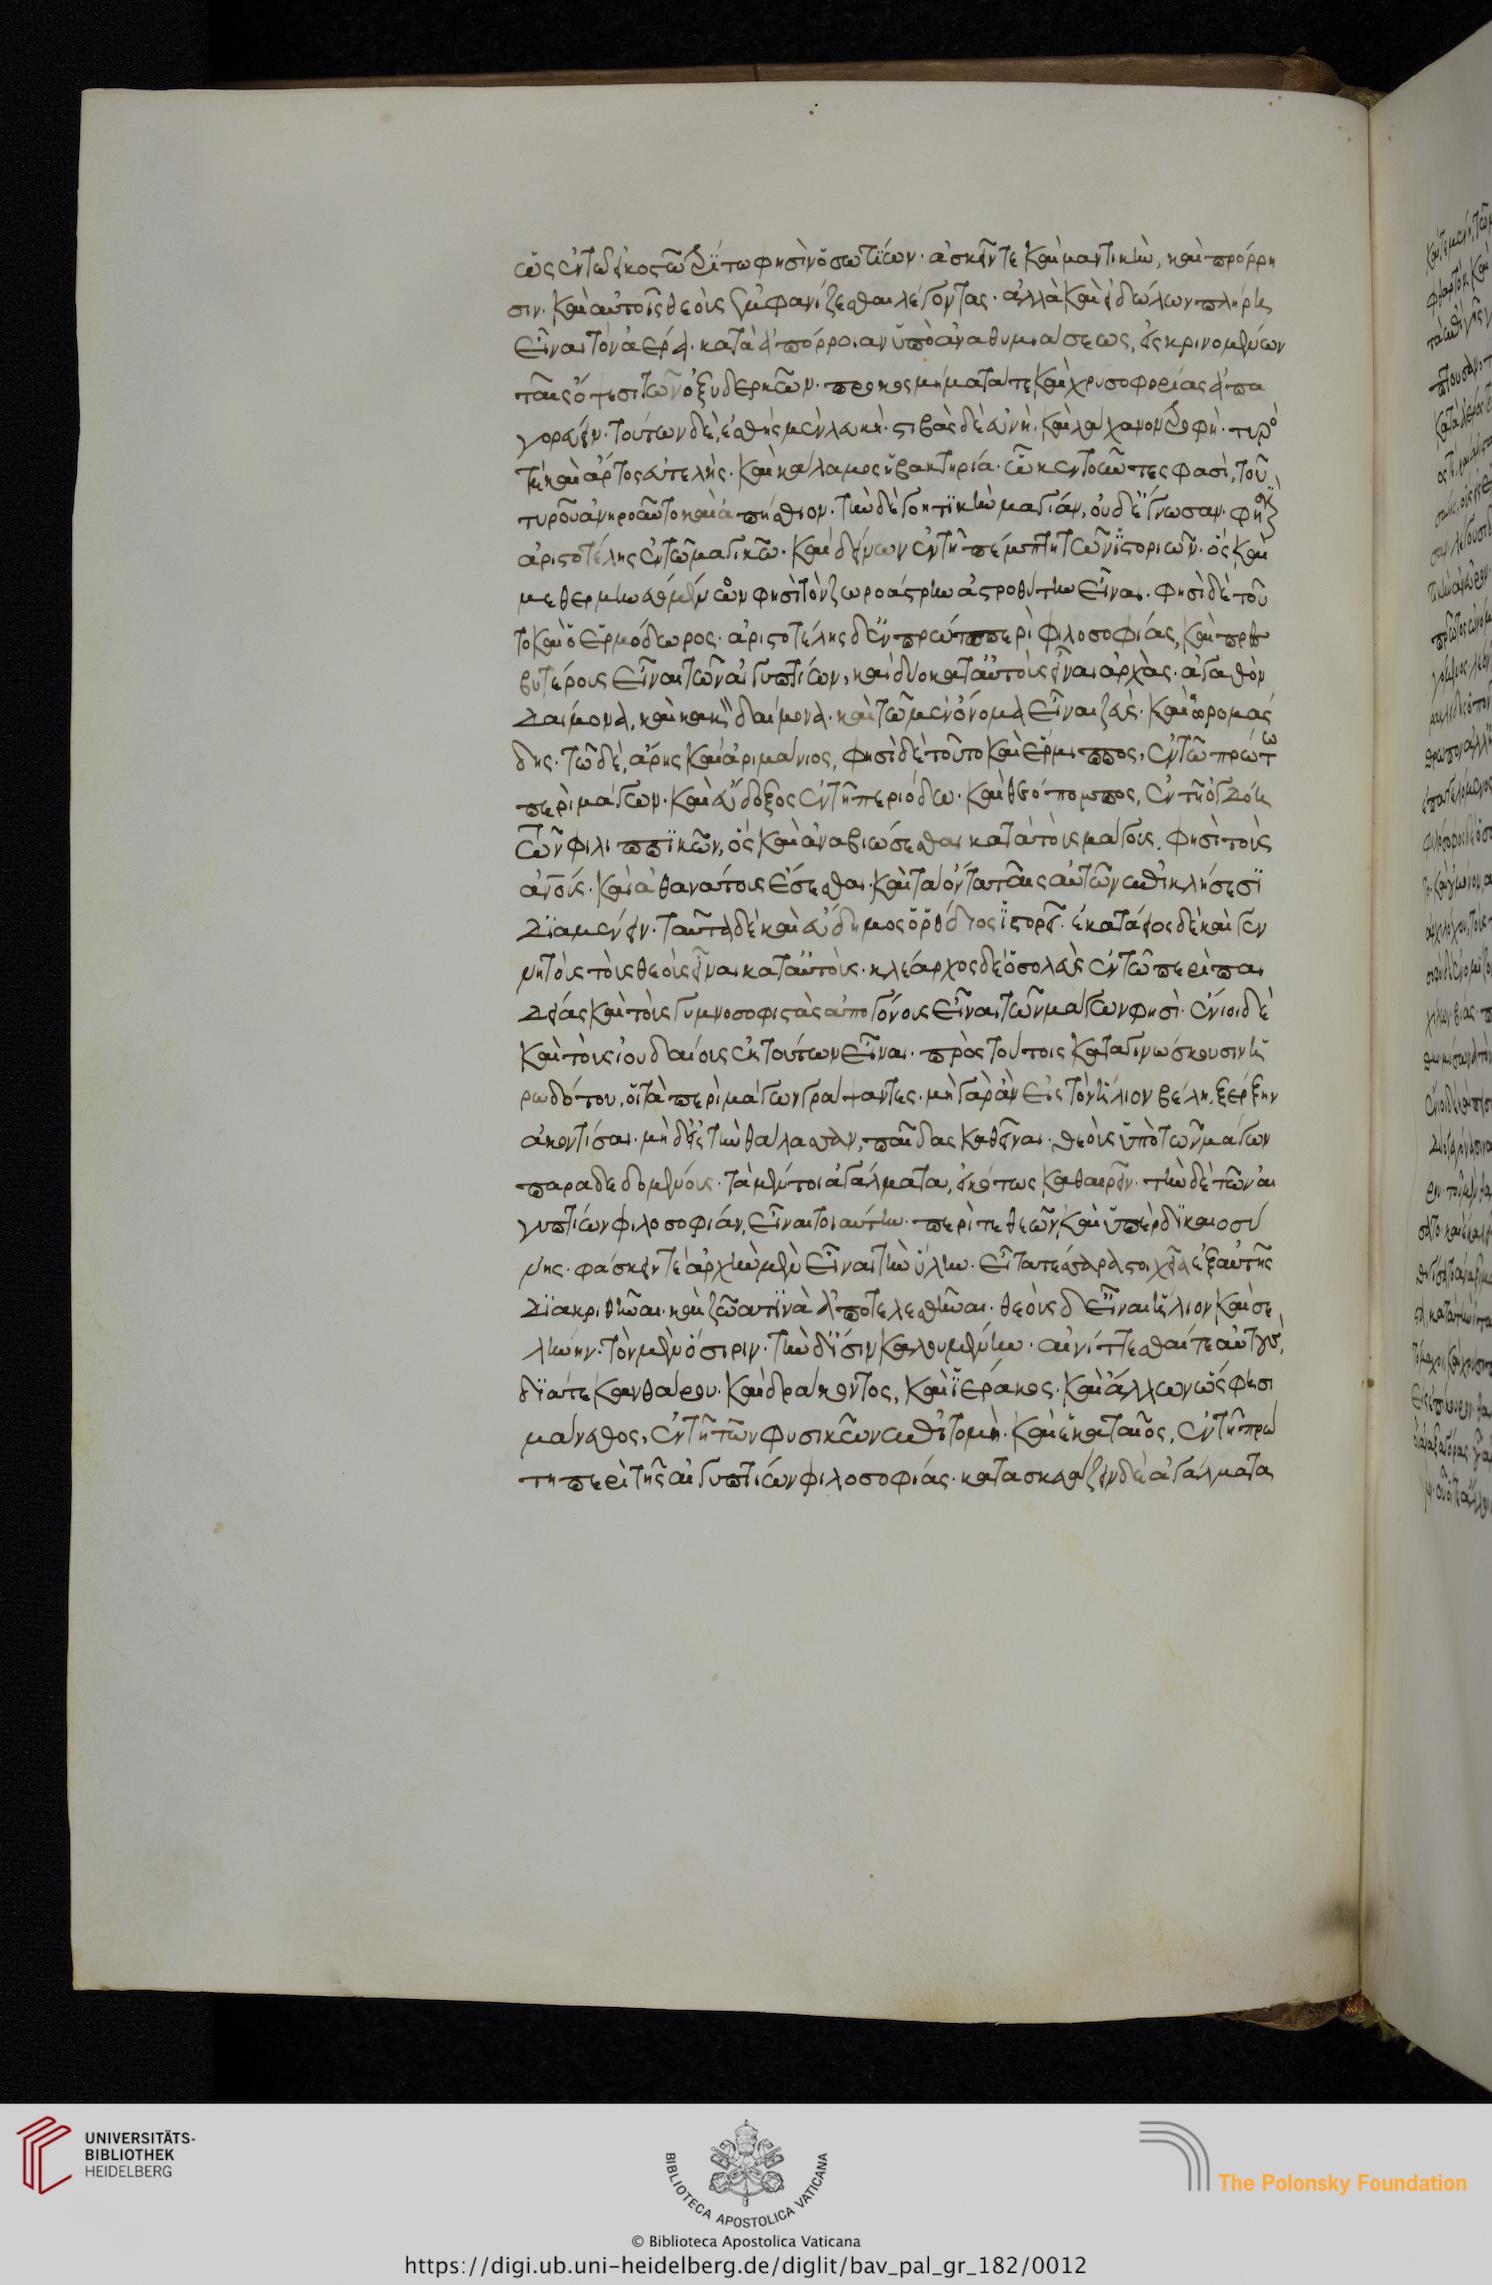 ὡς ἐν τῷ εἰκοστῷ τρίτῳ φησὶν ὁ σωτίων· ἀσκεῖν τε καὶ μαντικὴν, καὶ πρόρρη
σιν. καὶ αὐτοῖς θεοὺς ἐμφανίζεσθαι λέγοντας· ἀλλὰ καὶ εἰδώλων πλήρη
εἶναι τὸν ἀέρα. κατὰ ἀπόρροιαν ὑπὸ ἀναθυμιάσεως, εἰσκρινομένων
ταῖς ὄψεσι τῶν ὀξυδερκῶν· προκοσμήματά τε καὶ χρυσοφορίας ἀπα
γορεύειν· τούτων δὲ, ἐσθὴς μὲν λευκή· στιβὰς δὲ εὐνὴ. καὶ λάχανον τροφὴ· τυρό
τε καὶ ἄρτος εὐτελής. καὶ κάλαμος ἡ βακτηρία· ᾧ κεντοῦντες φασὶ, τοῦ
τυροῦ ἀνῃροῦντο καὶ ἀπήσθιον. τὴν δὲ γοητικὴν μαγείαν, οὐδ' ἔγνωσαν. φησὶν
ἀριστοτέλης ἐν τῷ μαγικῷ. καὶ δείνων ἐν τῇ πέμπτῃ τῶν ἱστοριῶν. ὃς καὶ
μεθερμηνευόμενόν φησι τὸν ζωροάστρην ἀστροθύτην εἶναι. φησὶ δὲ τοῦ
το καὶ ὁ ἑρμόδωρος. ἀριστοτέλης δ' ἐν πρώτῳ περὶ φιλοσοφίας, καὶ πρεσ
βυτέρους εἶναι τῶν αἰγυπτίων, καὶ δύο κατ' αὐτοὺς εἶναι ἀρχάς. ἀγαθὸν
δαίμονα, καὶ κακὸν δαίμονα. καὶ τῷ μὲν ὄνομα εἶναι ζεὺς. καὶ ὠρομάσ
δης. τῷ δὲ, ἅδης καὶ ἀριμάνιος, φησὶ δὲ τοῦτο καὶ ἕρμιππος, ἐν τῷ πρώτω
περὶ μάγων. καὶ εὔδοξος ἐν τῇ περιόδῳ. καὶ θεόπομπος, ἐν τῇ ὀγδόῃ
τῶν φιλιππικῶν, ὃς καὶ ἀναβιώσεσθαι κατὰ τοὺς μάγους, φησὶ τοὺς
ἀνους. καὶ ἀθανάτους ἔσεσθαι. καὶ τὰ ὄντα ταῖς αὐτῶν ἐπικλήσεσι
διαμένειν. ταῦτα δὲ καὶ εὔδημος ὁ ῥόδιος ἱστορεῖ. ἑκαταῖος δὲ καὶ γεν
νητοὺς τοὺς θεοὺς εἶναι κατ' αὐτούς. κλέαρχος δὲ ὁ σολεὺς ἐν τῷ περὶ παι
δείας καὶ τοὺς γυμνοσοφιστὰς ἀπογόνους εἶναι τῶν μάγων φησὶ. ἔνιοι δὲ
καὶ τοὺς ἰουδαίους ἐκ τούτων εἶναι. πρὸς τούτοις καταγινώσκουσιν ἡ
ροδότου, οἱ τὰ περὶ μάγων γράψαντες. μὴ γὰρ ἂν εἰς τὸν ἥλιον βέλη ξέρξην
ἀκοντίσαι. μὴ δ' εἰς τὴν θάλασσαν, πέδας καθεῖναι. θεοὺς ὑπὸ τῶν μάγων
παραδεδομένους. τὰ μέντοι ἀγάλματα, εἰκότως καθαιρεῖν. τὴν δὲ τῶν αἰ
γυπτίων φιλοσοφίαν, εἶναι τοιαύτην. περί τε θεῶν, καὶ ὑπὲρ δικαιοσύ
νης. φάσκειν τε ἀρχὴν μὲν εἶναι τὴν ὕλην. εἶτα τέσσαρα στοιχεῖα ἐξ αὐτῆς
διακριθῆναι. καὶ ζῶα τινὰ ἀποτελεσθῆναι. θεοὺς δ' εἶναι ἥλιον καὶ σε
λήνην. τὸν μὲν ὄσιριν. τὴν δ' ἶσιν καλουμένην. αἰνίττεσθαί τε αὐτοὺς,
διά τε κανθάρου. καὶ δράκοντος, καὶ ἱέρακος. καὶ ἄλλων ὥς φησι
μάνεθος, ἐν τῇ τῶν φυσικῶν ἐπιτομῇ. καὶ ἑκαταῖος, ἐν τῇ πρώ
τῃ περὶ τῆς αἰγυπτίων φιλοσοφίας. κατασκευάζειν δὲ ἀγάλματα
UNIVERSITÄTS-
BIBLIOTHEK
HEIDELBERG
BIBLIOTECA APOSTOLICA VATICANA
The Polonsky Foundation
© Biblioteca Apostolica Vaticana
https://digi.ub.uni-heidelberg.de/diglit/bav_pal_gr_182/0012